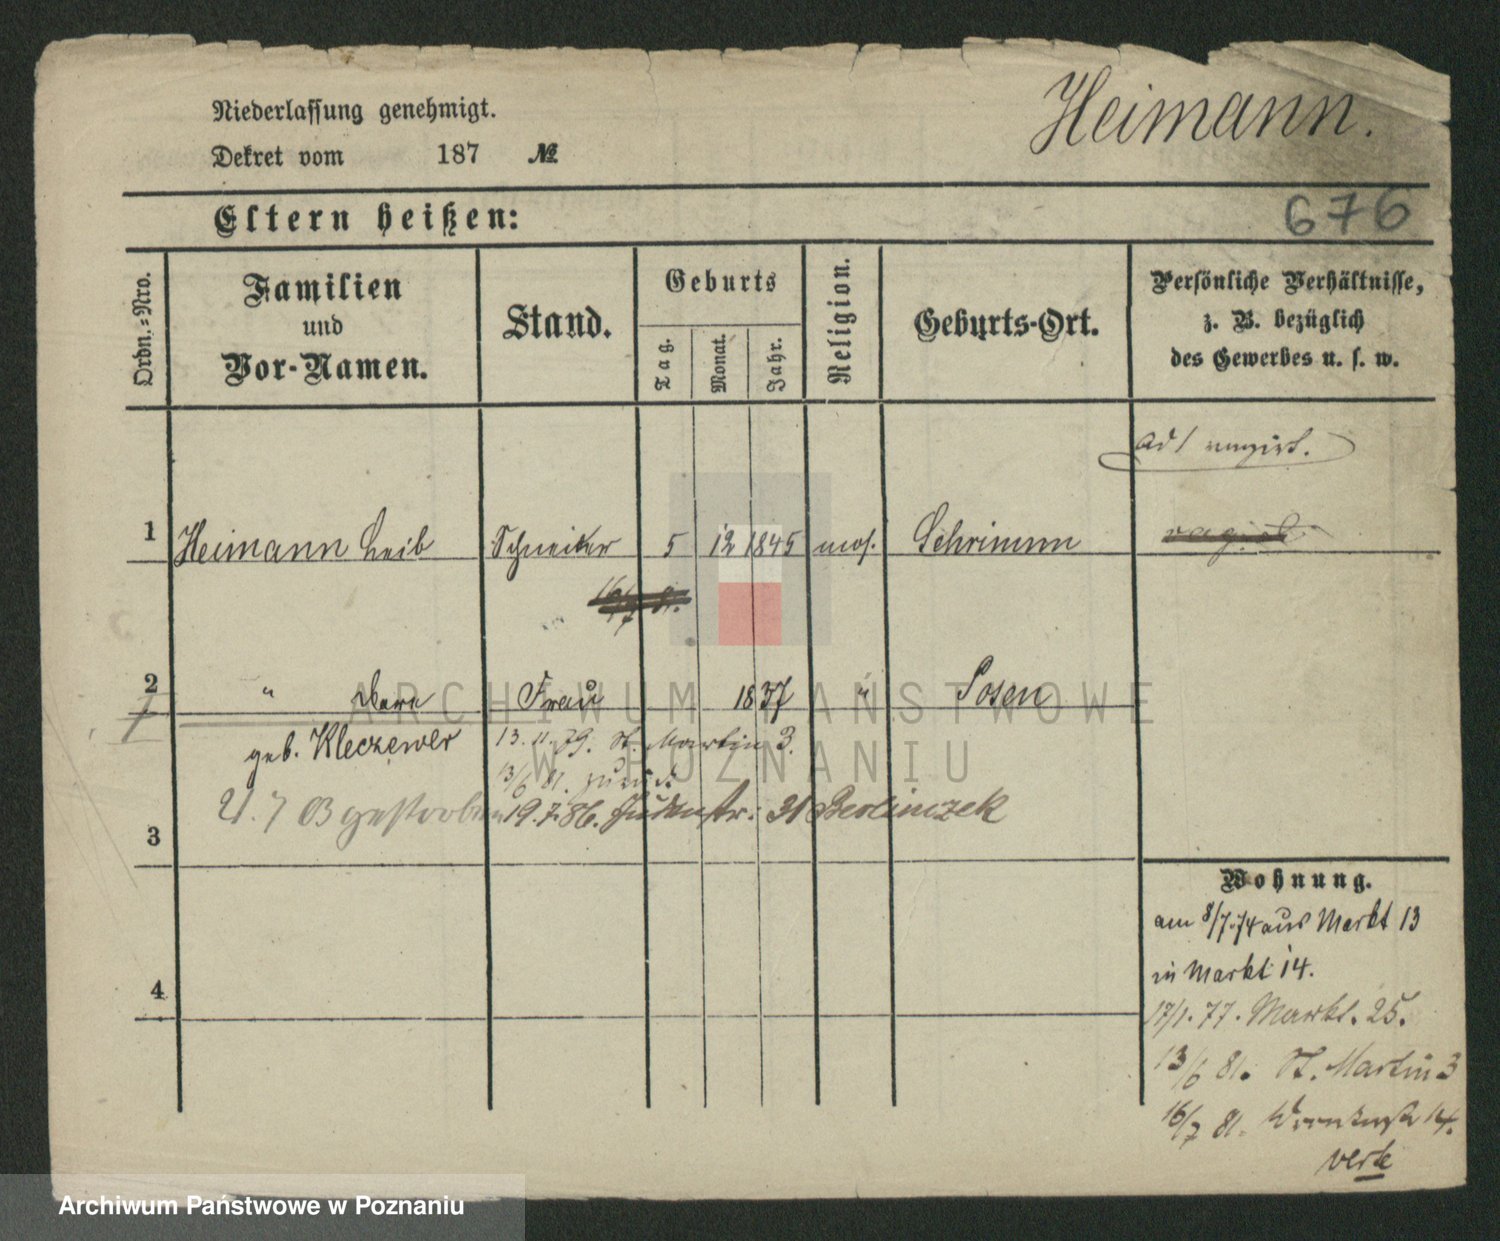 Niederlassung genehmigt.
Heimann.
Dekret vom 187 №
Eltern heißen:
676
Ordn.-Nro.
Familien
und
Vor-Namen.
Stand.
Geburts
Tag.
Monat.
Jahr.
Religion.
Geburts-Ort.
Persönliche Verhältnisse,
z. B. bezüglich
des Gewerbes u. s. w.
ad 1
1 Heimann Leib Schneider 5 12 1845 mos. Schrimm
16/7 81.
2 " Frau 1837 " Posen
geb. Kleczewer 13. 11. 79. St. Martin 3.
13/6 81. zurück
gestorben 19.7.86. Judenstr. 31 Berlinczek
3
4
Wohnung.
am 8/7.74 aus Markt 13
in Markt 14.
17/1. 77. Markt. 25.
13/6 81. St. Martin 3
16/7 81. 14.
verte
ARCHIWUM PAŃSTWOWE
W POZNANIU
Archiwum Państwowe w Poznaniu